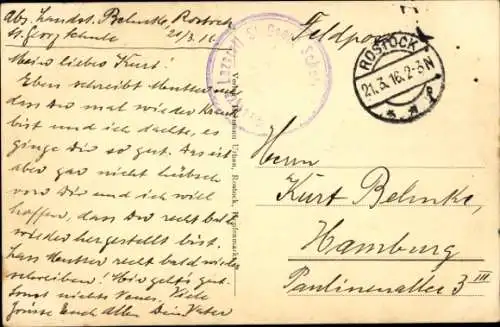 Abs. Landst. Behnke, Rostock
St. Georg Schule 21/3.16.
Feldpost
Lazarett St. Georg-Schule
Rostock
ROSTOCK
21.3.16.2-3N
Mein lieber Kurt!
Eben schreibt Mutter mir
dass Du mal wieder krank
bist und ich dachte, es
ginge Dir so gut. Das ist
aber gar nicht hübsch
von Dir und ich will
hoffen, dass Du recht bald
wieder hergestellt bist.
Lass Mutter recht bald wieder
schreiben! Mir geht's gut.
Sonst nichts Neues. Viele
Grüsse Euch allen Dein Vater
Rostock, Hopfenmarkt
Herrn
Kurt Behnke,
Hamburg
Paulinenallee 3 III